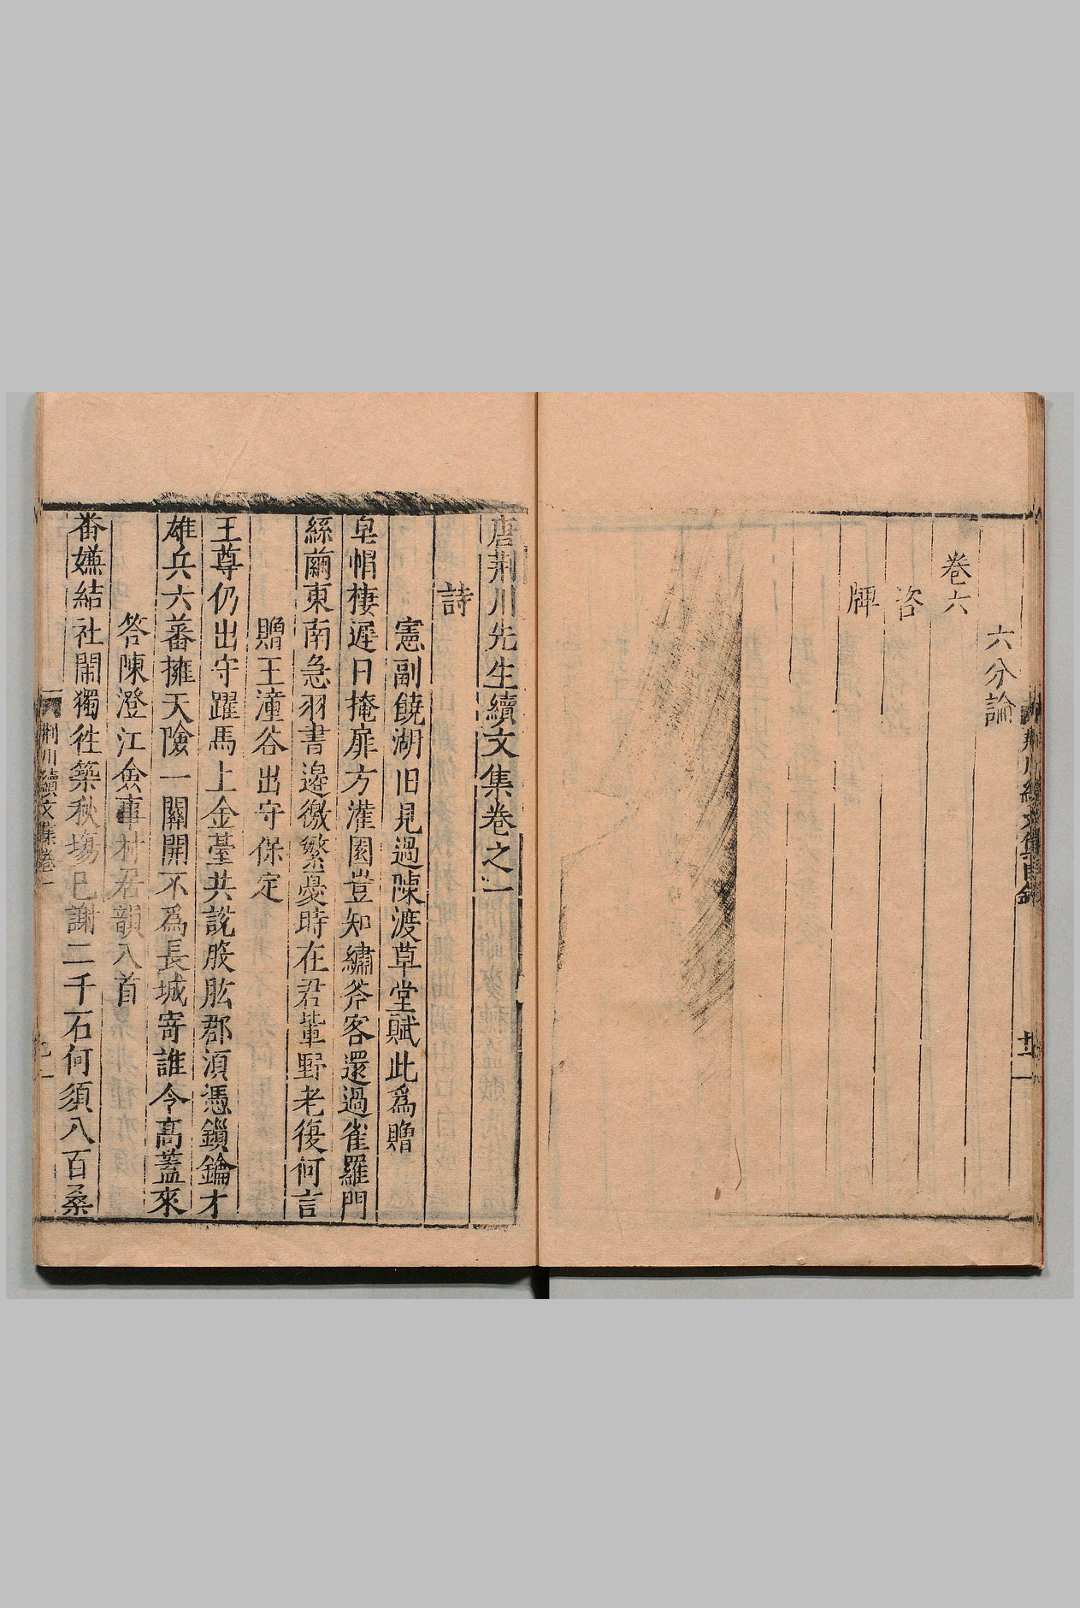 六分論
卷六
咨
牌
唐荆川先生續文集卷之一
詩
憲副饒湖旧見過陳渡草堂賦此爲贈
皂帽棲遲日掩扉方灌園豈知繡斧客還過雀羅門
絲繭東南急羽書邊徼繁憂時在君輩野老復何言
贈王潼谷出守保定
王尊仍出守躍馬上金臺共說股肱郡須憑鎖鑰才
雄兵六蕃擁天險一關開不爲長城寄誰令高蓋來
答陳澄江僉事村居韻八首
番嫌結社鬧獨徃築秋塲已謝二千石何須八百桑
荆川續文集卷一